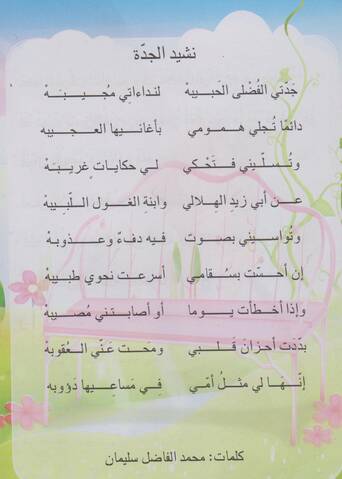 نشيد الجدّة
جَدّتي الفُضْلى الحَبيبهْ لنداءاتي مُجيبَهْ
دائمًا تُجلي همومي بأغانيها العجيبه
وتُسلّيني فتَحْكي لي حكاياتٍ غريبَهْ
عن أبي زيدِ الهلالي وابنةِ الغول اللّبيبهْ
وتُواسيني بصوت فيه دفءٌ وعذوبهْ
إن أحسّت بسُقامي أسرعت نحوي طبيبهْ
وإذا أخطأت يوما أو أصابتني مُصيبهْ
بدّدت أحزانَ قلبي ومحَت عَنّي العُقوبهْ
إنّهَا لي مثلُ أمّي فِي مَساعِيها دَؤوبه
كلمات: محمد الفاضل سليمان